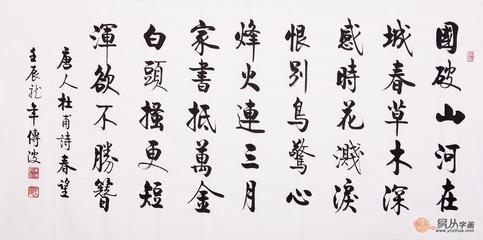 國破山河在
城春草木深
感時花濺淚
恨别鳥驚心
烽火連三月
家書抵萬金
白頭搔更短
渾欲不勝簪
唐人杜甫詩春望
壬辰龙年傳波
易从字画
www.yizihua.com